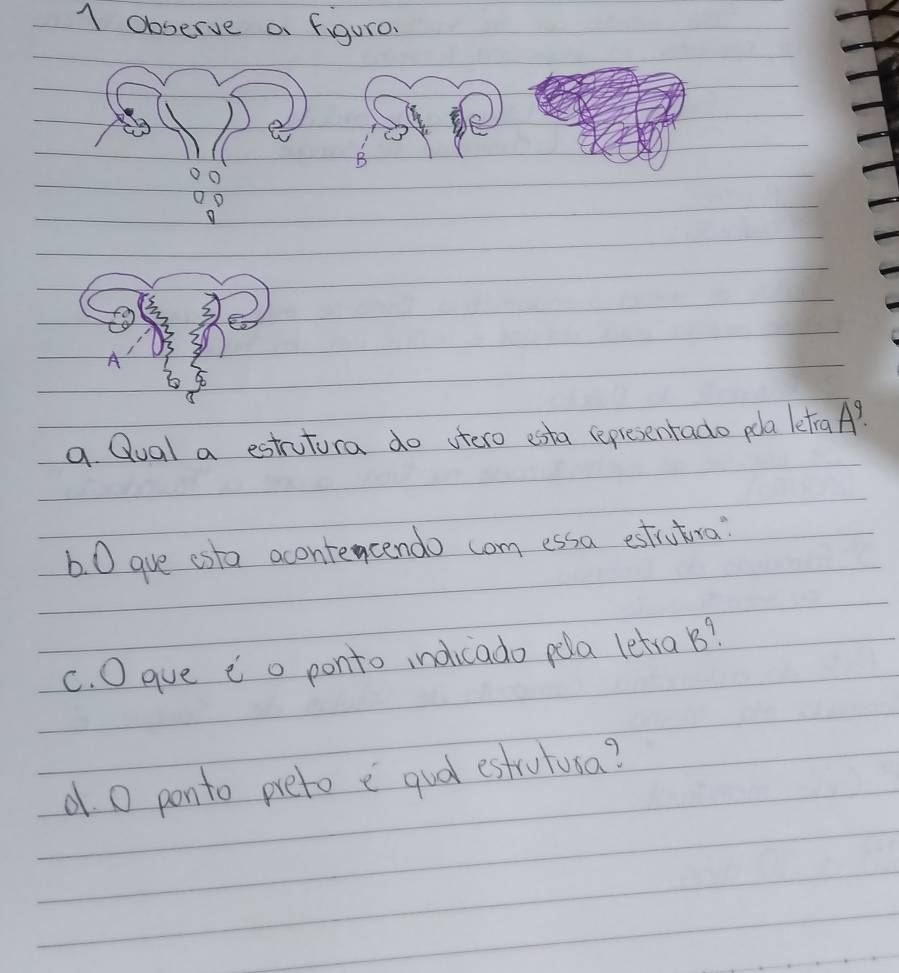 1 Observe a figura.
B
A
a. Qual a estrutura do útero esta representado pela letra A?
b. O que esta acontencendo com essa estrutura?
c. O que é o ponto indicado pela letra B?
d. O ponto preto é qual estrutura?